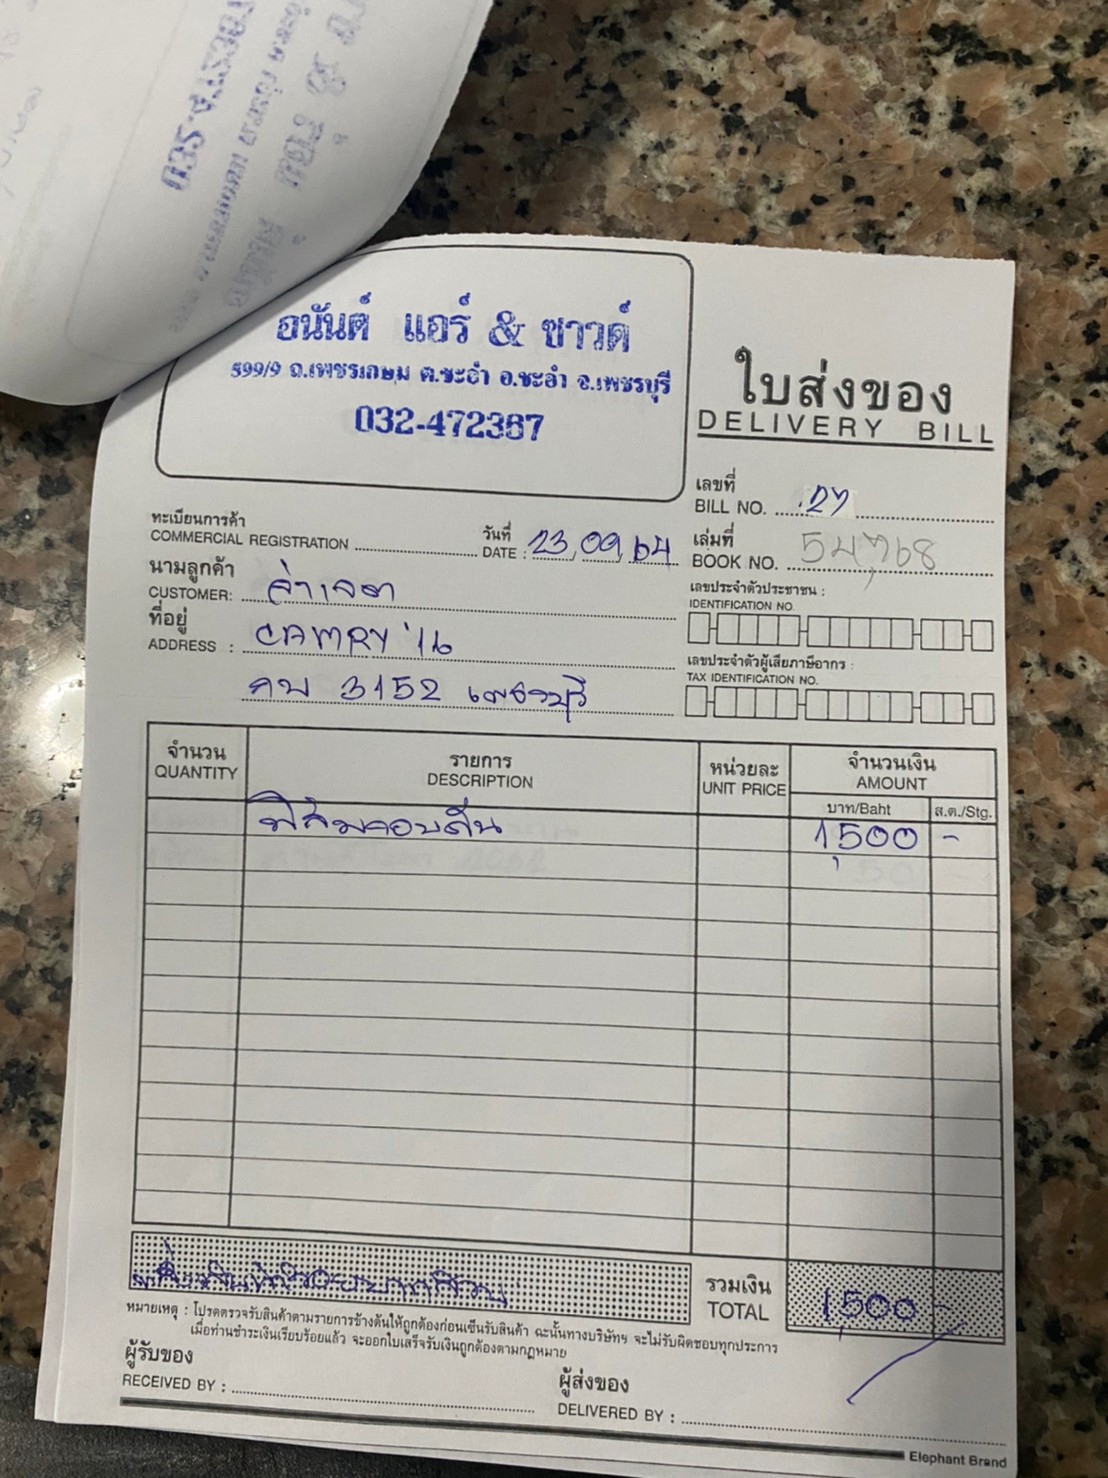 อนันต์ แอร์ & ซาวด์
599/9 ถ.เพชรเกษม ต.ชะอำ อ.ชะอำ จ.เพชรบุรี
032-472367
ใบส่งของ
DELIVERY BILL
เลขที่
BILL NO. 27
ทะเบียนการค้า
COMMERCIAL REGISTRATION
วันที่
DATE : 23,09,64
เล่มที่
BOOK NO.
นามลูกค้า
CUSTOMER:
ที่อยู่
ADDRESS : CAMRY '16
กบ 3152 เพชรบุรี
เลขประจำตัวประชาชน :
IDENTIFICATION NO.
เลขประจำตัวผู้เสียภาษีอากร :
TAX IDENTIFICATION NO.
จำนวน
QUANTITY
รายการ
DESCRIPTION
หน่วยละ
UNIT PRICE
จำนวนเงิน
AMOUNT
บาท/Baht ส.ต./Stg.
ฟิล์มรอบคัน 1,500 -
รวมเงิน
TOTAL 1,500 -
หมายเหตุ : โปรดตรวจรับสินค้าตามรายการข้างต้นให้ถูกต้องก่อนเซ็นรับสินค้า ฉะนั้นทางบริษัทฯ จะไม่รับผิดชอบทุกประการ
เมื่อท่านชำระเงินเรียบร้อยแล้ว จะออกใบเสร็จรับเงินถูกต้องตามกฎหมาย
ผู้รับของ
RECEIVED BY :
ผู้ส่งของ
DELIVERED BY :
Elephant Brand